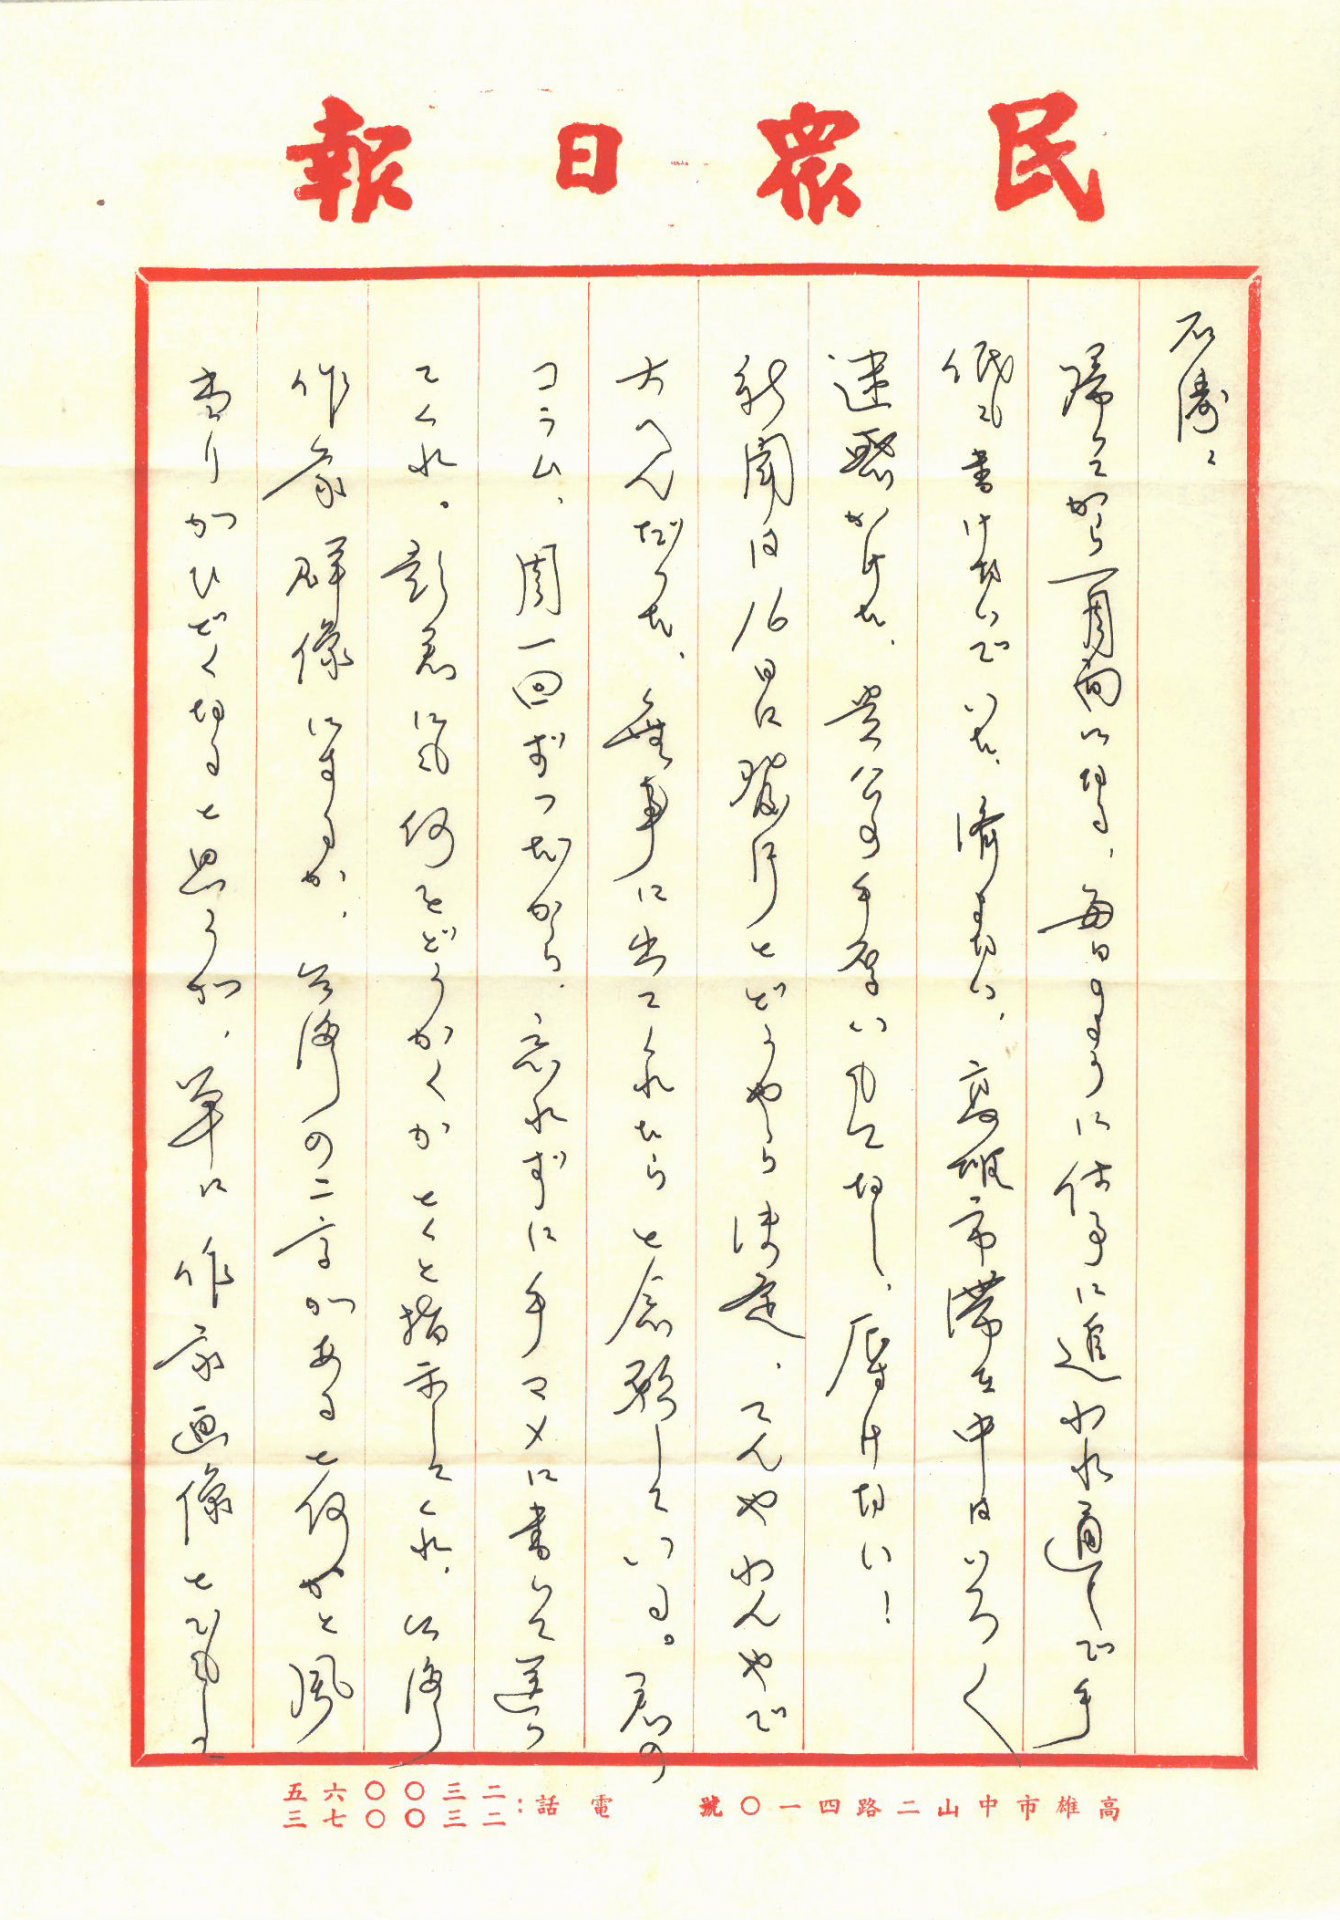 民眾日報
石濤に
帰ってから一週間になる、毎日のように仕事に追われ通しで手
紙も書けないでいた、済まない、高雄市滞在中はいろ〱
迷惑かけた、貴公の手厚いもてなし、辱けない！
新聞は16日に発行とどうやら決定、てんやわんやで
大へんだった、無事に出てくれたらと念願している。君の
コラム、週一回ずつだから、忘れずに手マメに書いて送っ
てくれ。彭君にも何をどうかくかとくと指示してくれ、
作家群像にするか、の二字があると何かと風
当りがひどくなると思うが、単に作家画像とでもして
高雄市中山二路四一〇號 電話：二三〇〇六五
二三〇〇七三